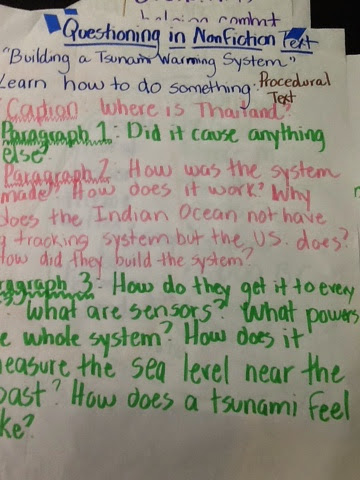 helping combat
Questioning in NonFiction Text
"Building a Tsunami Warning System"
Learn how to do something. Procedural
Text
Caption: Where is Thailand?
Paragraph 1: Did it cause anything
else?
Paragraph 2: How was the system
made? How does it work? Why
does the Indian Ocean not have
a tracking system but the U.S. does?
How did they build the system?
ragraph 3: How do they get it to every
What are sensors? What powers
e whole system? How does it
easure the sea level near the
oast? How does a tsunami feel
ke?